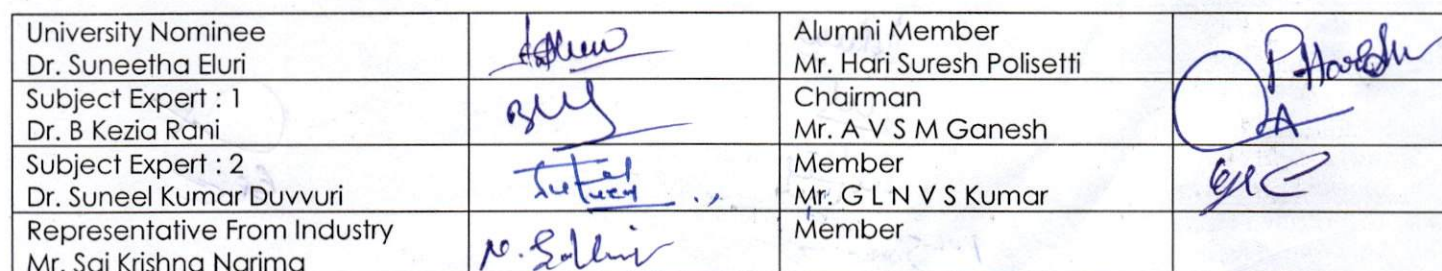 University Nominee
Dr. Suneetha Eluri
Alumni Member
Mr. Hari Suresh Polisetti
P. Haresh
Subject Expert : 1
Dr. B Kezia Rani
Chairman
Mr. A V S M Ganesh
Subject Expert : 2
Dr. Suneel Kumar Duvvuri
Member
Mr. G L N V S Kumar
Representative From Industry
Mr. Sai Krishna Narima
Member